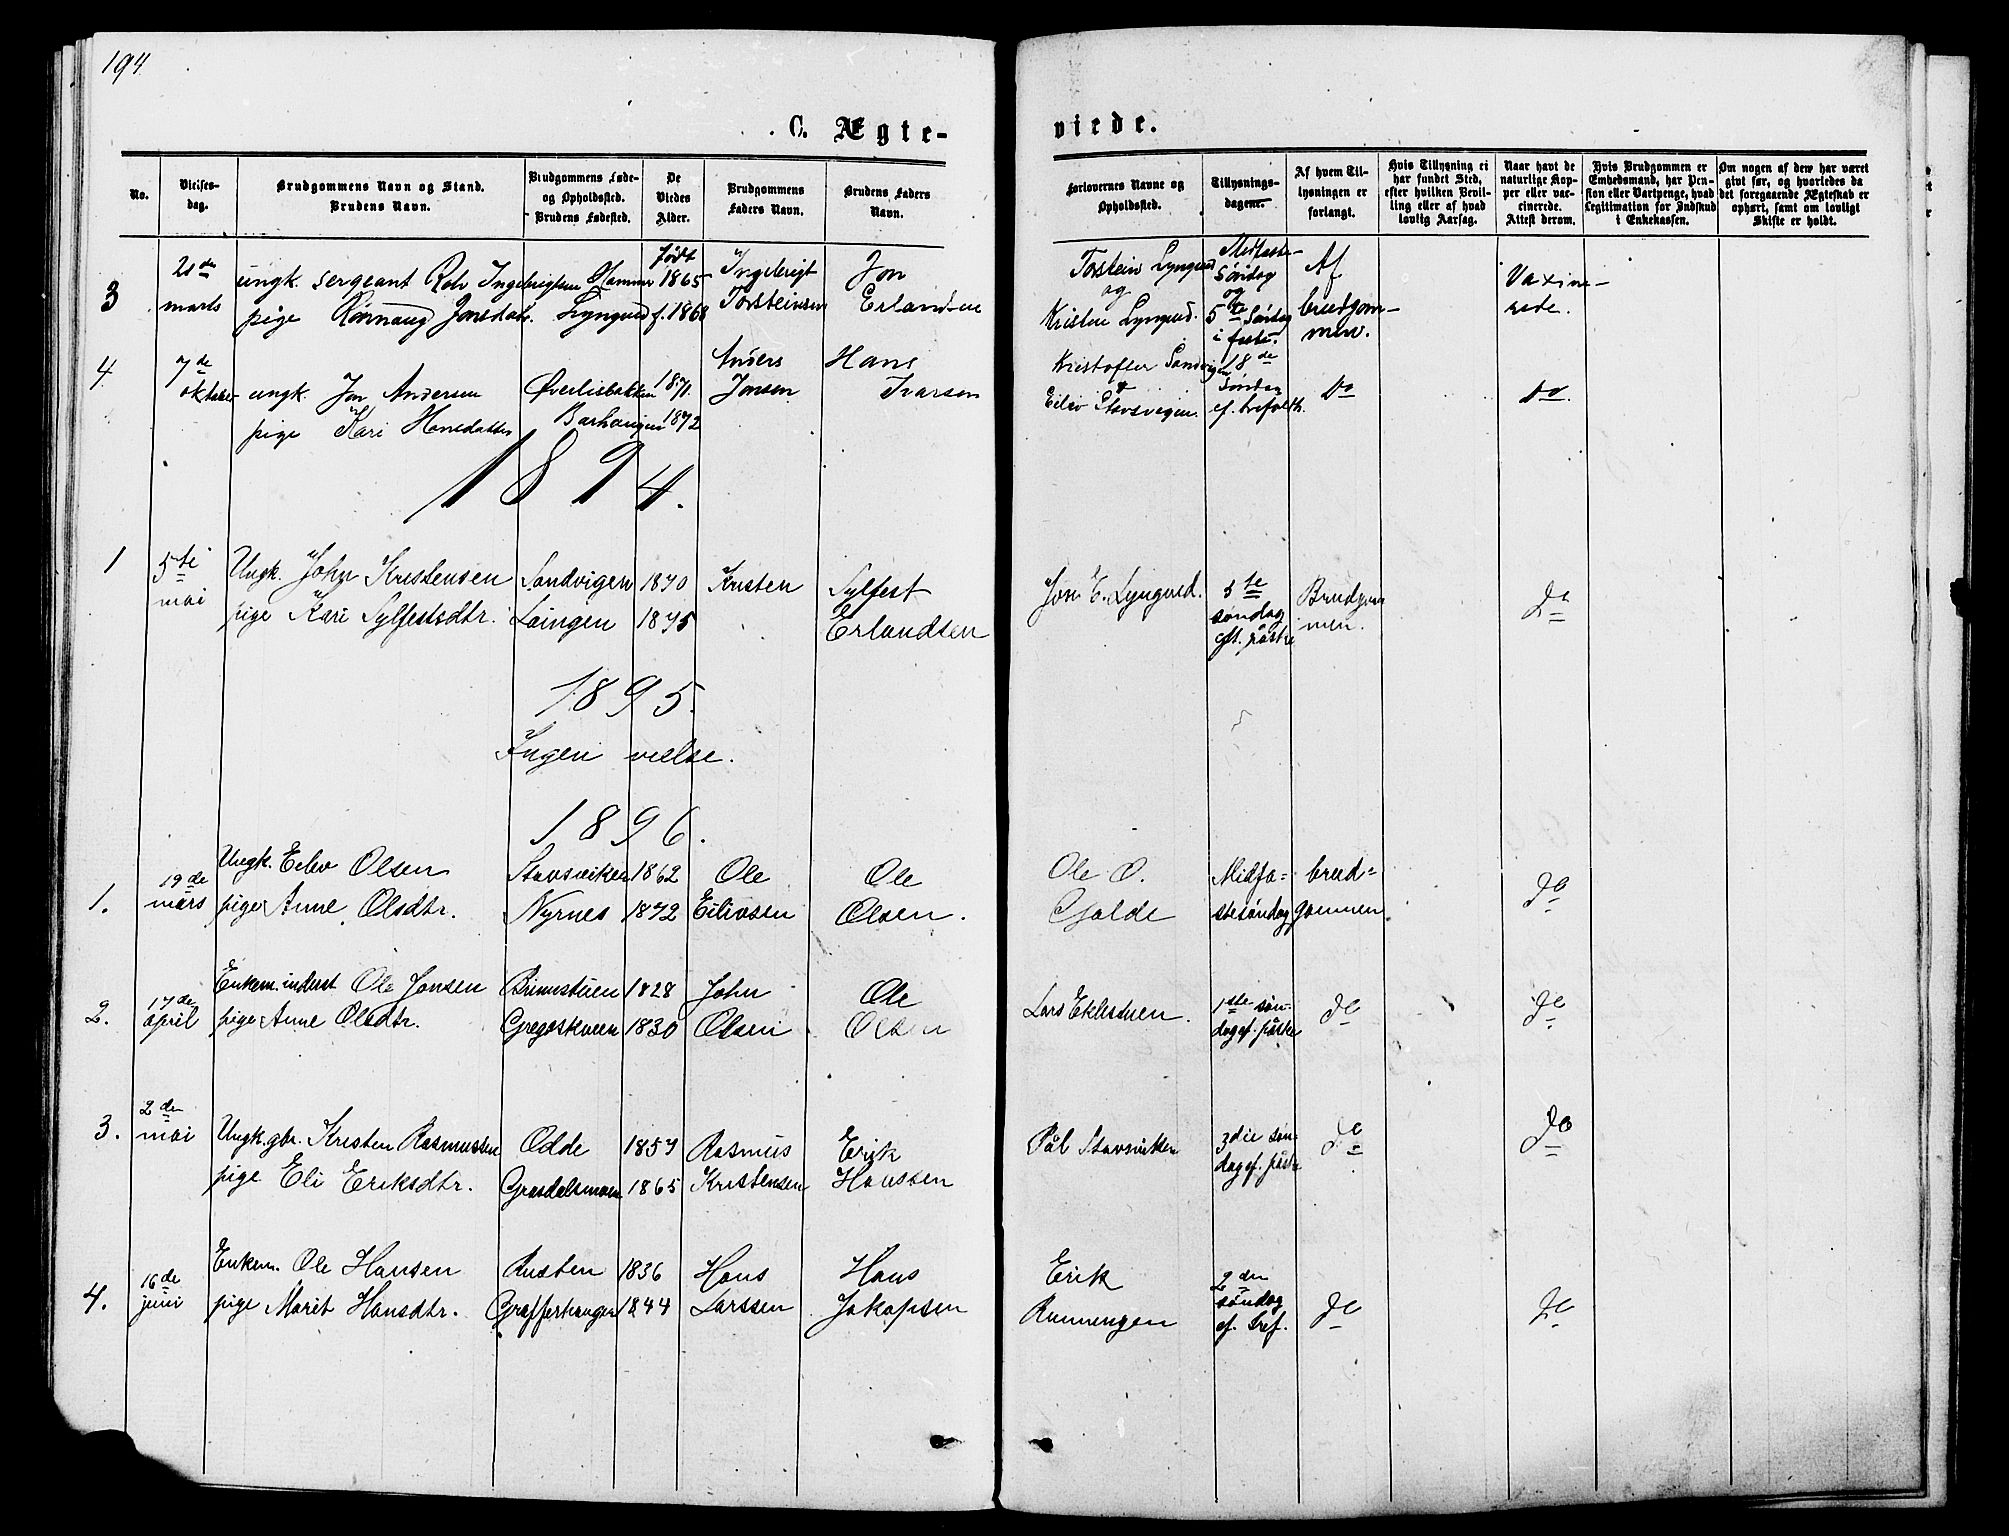 194.
C. Ægte-
viede.
No.
Vielses-
dag.
Brudgommens Navn og Stand.
Brudens Navn.
Brudgommens Føde-
og Opholdssted.
Brudens Fødested.
De
Viedes
Alder.
Brudgommens
Faders Navn.
Brudens Faders
Navn.
Forlovernes Navne og
Opholdssted.
Tillysnings-
dagene.
Af hvem Til-
lysningen er
forlangt.
Hvis Tillysning ei
har fundet Sted,
efter hvilken Bevil-
ling eller af hvad
lovlig Aarsag.
Naar havt de
naturlige Kop-
per eller vac-
cinerede.
Attest derom.
Hvis Brudgommen er
Embedsmand, har Pen-
sion eller Vartpenge, hvad
Legitimation for Indskud
i Enkekassen.
Om nogen af dem har været
gift før, og hvorledes da
det foregaaende Ægteskab er
ophørt, samt om lovligt
Skifte er holdt.
3
21de
marts
ungk. sergeant Rolv Ingebrigtsen Hammer
pige Rønnaug Jonsdatr. Lyngved
Født
1865
f. 1868
Ingebrigt
Torsteinsen
Jon
Erlandsen
Torstein Lyngved
og
Kristen Lyngved.
Midfaste-
søndag
og
5te Søndag
i faste.
Af
brudgom-
men.
Vaxine-
rede.
4.
7de
oktober
ungk. Jon Andersen
pige Kari Hansdatter
Øverlisbakken
Barhaugen
1871.
1872
Anders
Jonsen
Hans
Ivarsen
Kristoffer Sandvigen
&
Eilev Stavsvigen.
18de
Søndag
ef. trefoldh.
Do
Do.
1894.
1
5te
mai
Ungk. John Kristensen
pige Kari Sylfestsdtr.
Sandvigen
Loingen
1870
1875
Kristen
Sylfest
Erlandsen
Jon E. Lyngved.
5te
søndag
eft. påske
Brudgom
men.
Do
1895.
Ingen vielse.
1896.
1.
19de
mars
Ungk. Eilev Olsen
pige Anne Olsdtr.
Stavsviken
Nyrnes
1862
1872
Ole
Eilivsen
Ole
Olsen.
Ole O.
Gjolde
Midfa-
stesøndag
brud-
gommen
Do
2.
17de
april
Enkem. inderst Ole Jonsen
pige Anne Olsdtr.
Brimistuen
Gregoskveen
1828
1830
John
Olsen
Ole
Olsen
Lars Eklestuen.
1ste søn-
dag ef. påske
Do
Do
3.
2den
mai
Ungk. gbr. Kristen Rasmussen
pige Eli Eriksdtr.
Odde
Grosdalsmoen
1857
1865
Rasmus
Kristensen
Erik
Hanssen
Pål Stavsviken
3die søn-
dag ef. påske
Do
Do
4.
16de
juni
Enkem. Ole Hansen
pige Marit Hansdtr.
Rusten
Grafferhaugen
1836
1844
Hans
Larssen
Hans
Jakopsen
Erik
Runningen
2den
søndag
ef. tref.
Do
Do